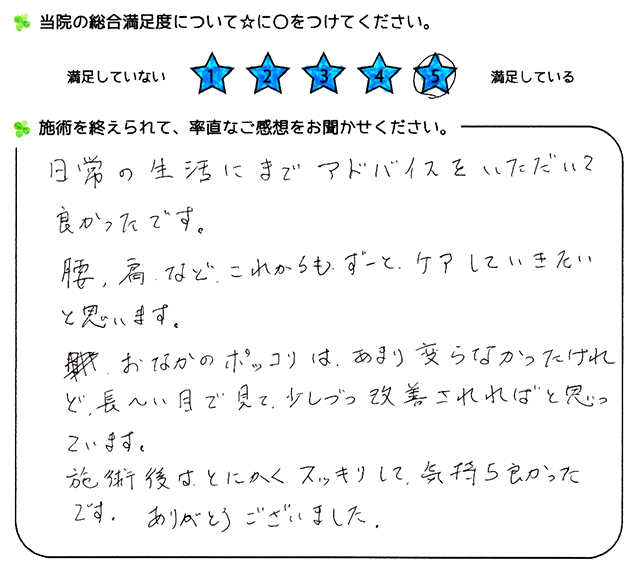 当院の総合満足度について☆に○をつけてください。
満足していない 1 2 3 4 5 満足している
施術を終えられて、率直なご感想をお聞かせください。
日常の生活にまで アドバイスをいただいて
良かったです。
腰、肩、など、これからも、ずーと、ケアしていきたい
と思います。
おなかのポッコリは、あまり変らなかったけれ
ど、長〜い目で見て、少しづつ改善されればと思っ
ています。
施術後は、とにかく、スッキリして、気持ち良かった
です。 ありがとうございました。